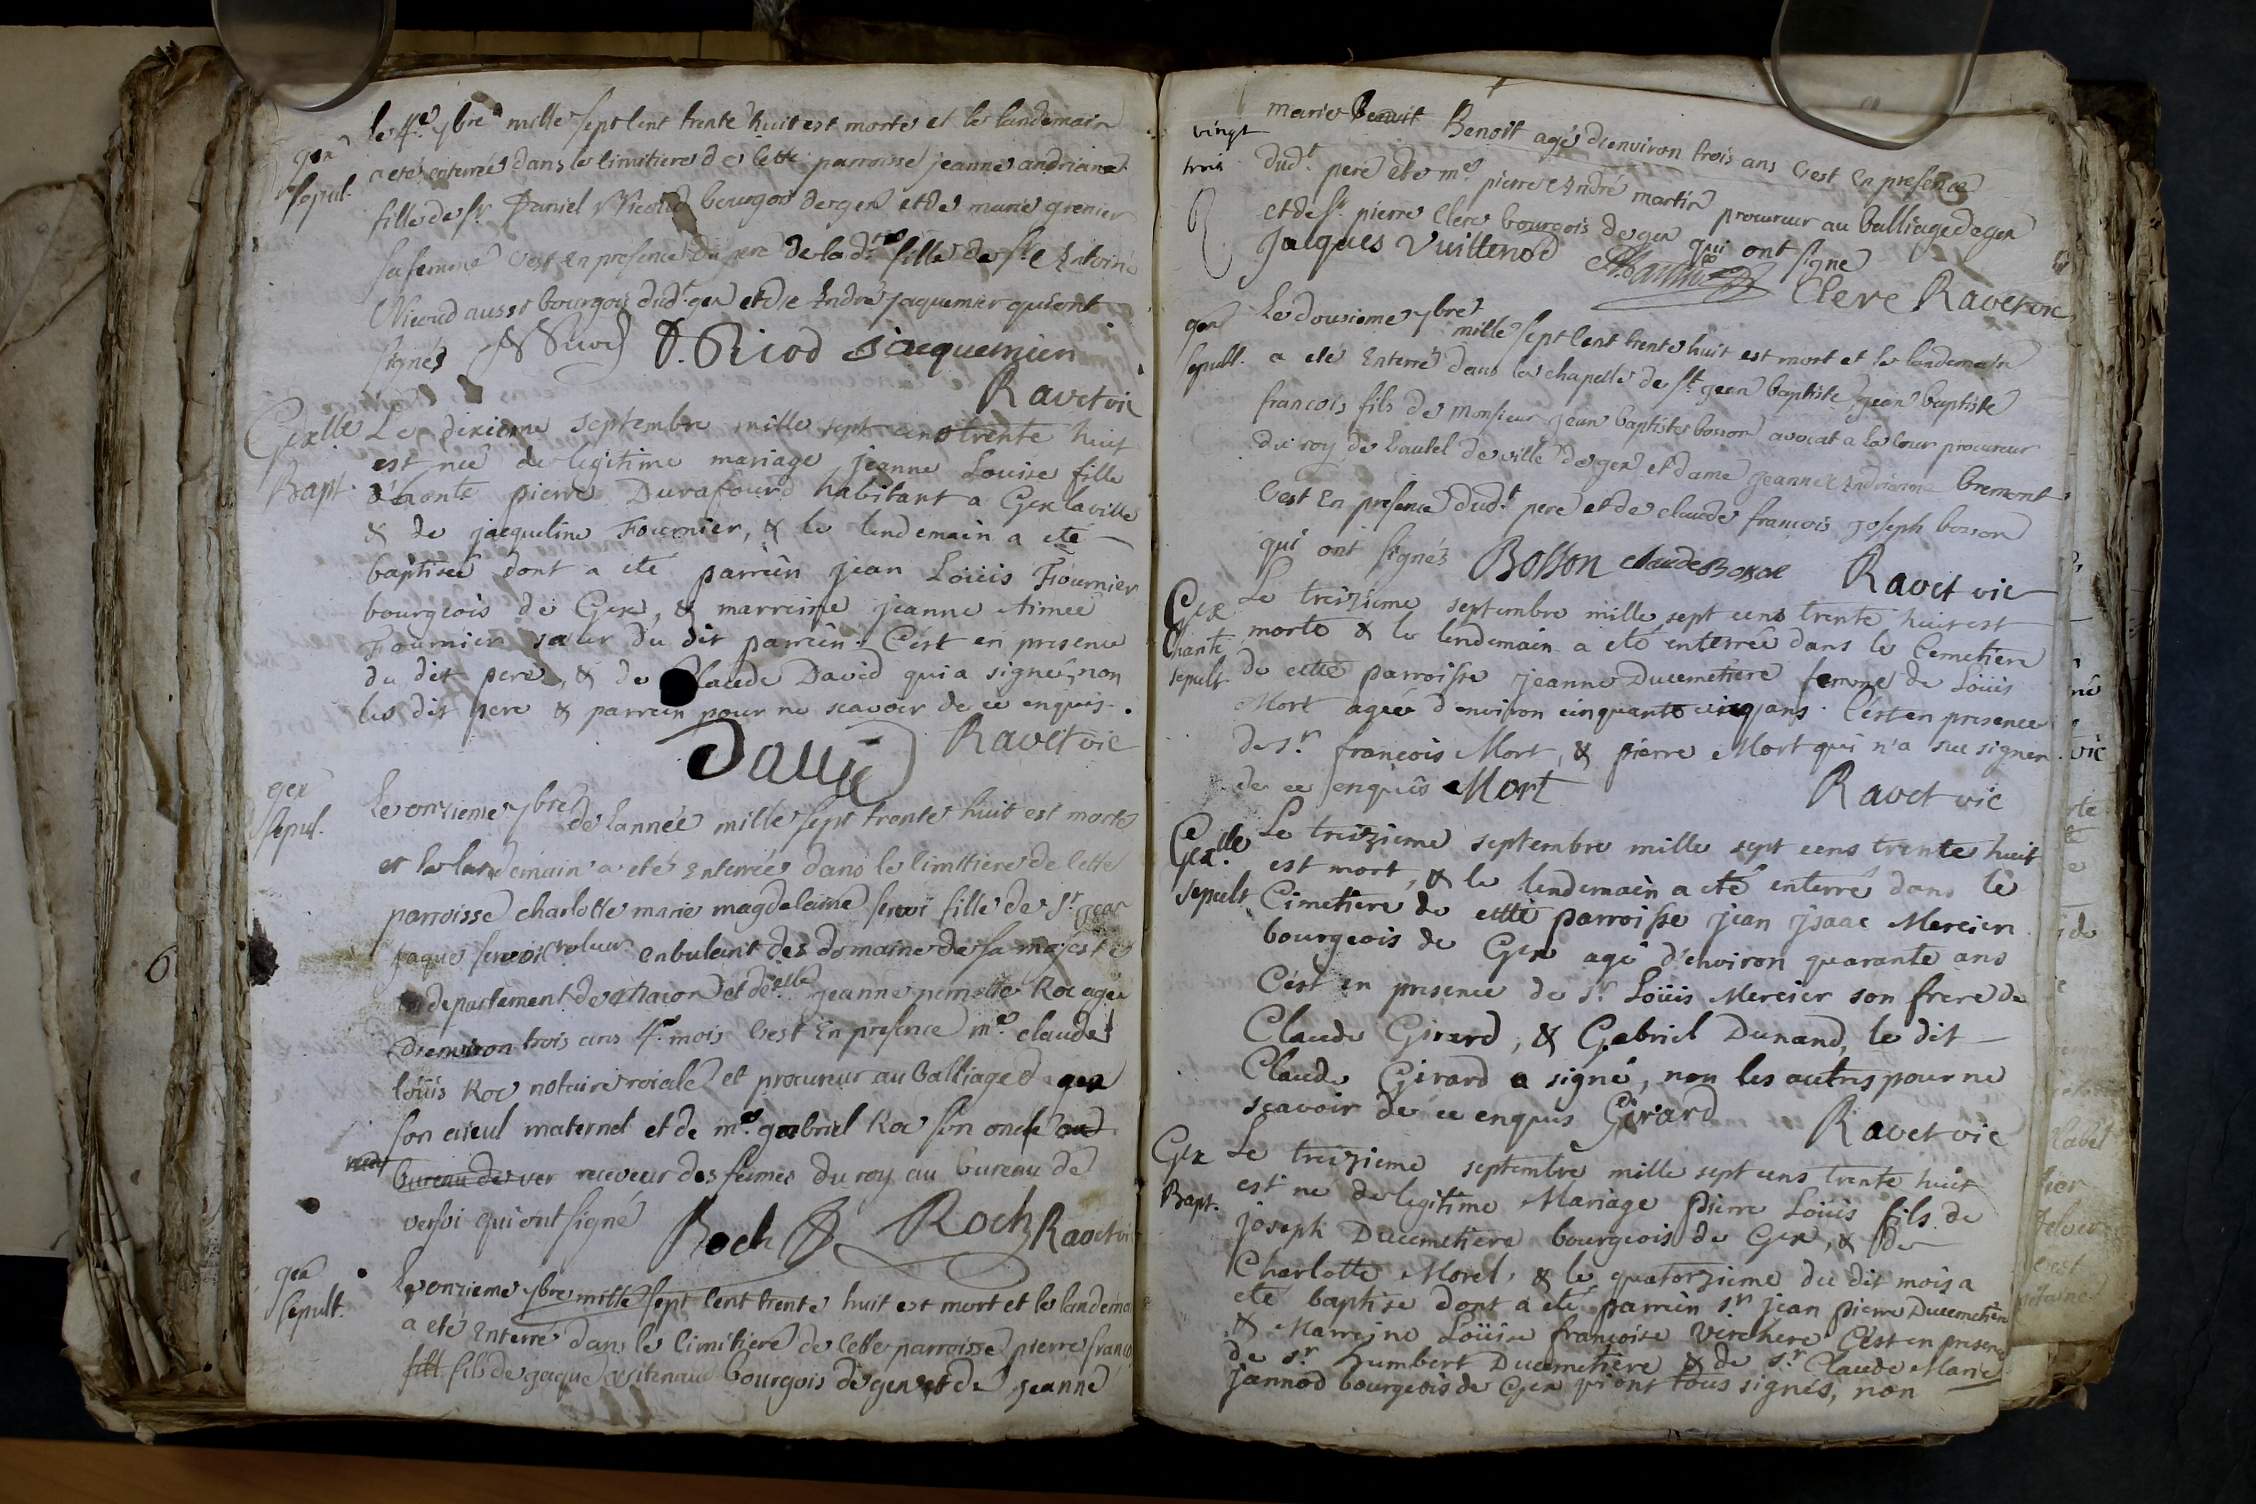 gex
sepul.
le 4e 7bre mille sept cent trente huit est morte et le landemain
a eté enterrée dans le cimitiere de cette parroisse jeanne andriane
fille de sr. Daniel Nicoud bourgois de gex et de marie grenier
sa femme c'est en presence du pere de la dte fille de sr Antoine
Nicoud aussi bourgois dudt gex et de André jaquemier qui ont
signés D. Nicod jaquemier
Ravet vic
Gex lle
Bapt.
Le dixieme septembre mille sept cens trente huit
est née de legitime mariage jeanne Louise fille
d'honte pierre Durafourd habitant a Gex la ville
& de jacqueline Fournier, & le lendemain a eté
baptisée dont a eté parrein jean Loüis Fournier
bourgeois de Gex, & marreine jeanne Aimée
Fournier sœur du dit parrein. C'est en presence
du dit pere, & de Claude David qui a signé, non
les dit pere & parrein pour ne scavoir de ce enquis.
David Ravet vic
gex
sepul.
Le onzieme 7bre de lannée mille sept trente huit est morte
et le landemain a eté enterrée dans le cimittiere de cette
parroisse charlotte marie magdelaine fille de sr jean
jaque enbulent des domaine de sa majesté
departement de et de elle jeanne pernette Roc agée
d'environ trois ans 4 mois c'est en presence me claude
loüis Roc notaire roiale et procureur au balliage d gex
son aieul maternel et de me gabriel Roc son oncle
bureau de ver receveur des fermes du roy au bureau de
versoi qui ont signé Roch Roch Ravet vi
gex
sepult.
Le onzieme 7bre mille sept cent trente huit est mort et le landema
a eté enterré dans le cimitiere de cette parroisse pierre franco
fill fils de jaque vuitenau bourgois de gex et de jeanne
vingt
trois
marie Benoit Benoit agé d'environ trois ans c'est en presence
dudt pere et de me pierre André martin procureur au balliage de gex
et de sr pierre Clerc bourgois de gex qui ont signé
jacques vuittenod Clerc Ravet vic
gex
sepult.
Le dousieme 7bre mille sept cent trente huit est mort et le landemain
a eté enterré dans la chapelle de st jean baptiste jean baptiste
francois fils de monsieur jean baptiste bosson avocat a la cour procureur
du roy de l'autel de ville de gex et dame jeanne Andrianne bremont
c'est en presence dudt pere et de claude francois joseph bosson
qui ont signés Bosson claude Bosson Ravet vic
Gex
Chante
sepult.
Le treizieme septembre mille sept cens trente huit est
morte & le lendemain a eté enterrée dans le Cemetiere
de cette parroisse jeanne Ducemetiere femme de Loüis
Mort agée d'environ cinquante cinq ans. C'est en presence
de sr. francois Mort, & pierre Mort qui n'a sceu signer
de ce enquis Mort Ravet vic
Gex. lle
sepult
Le treizieme septembre mille sept cens trente huit
est mort, & le lendemain a eté enterré dans le
Cimetiere de cette parroisse jean jsaac Mercier
bourgeois de Gex agé d'environ quarante ans
C'est en presence de sr Loüis Mercier son frere de
Claude Girard, & Gabriel Dunand, le dit
Claude Girard a signé, non les autres pour ne
scavoir de ce enquis Girard
Ravet vic
Gex
Bapt.
Le treizieme septembre mille sept cens trente huit
est né de legitime Mariage Pierre Loüis fils de
joseph Ducemetiere bourgeois de Gex, & de
Charlotte Morel, & le quatorzieme du dit mois a
eté baptisé dont a eté parrein sr jean pierre Ducemetiere
& Marreine Loüise françoise Verchere C'est en presence
de sr humbert Ducemetiere & de sr Claude Marie
jannod bourgeois de Gex qui ont tous signés, non